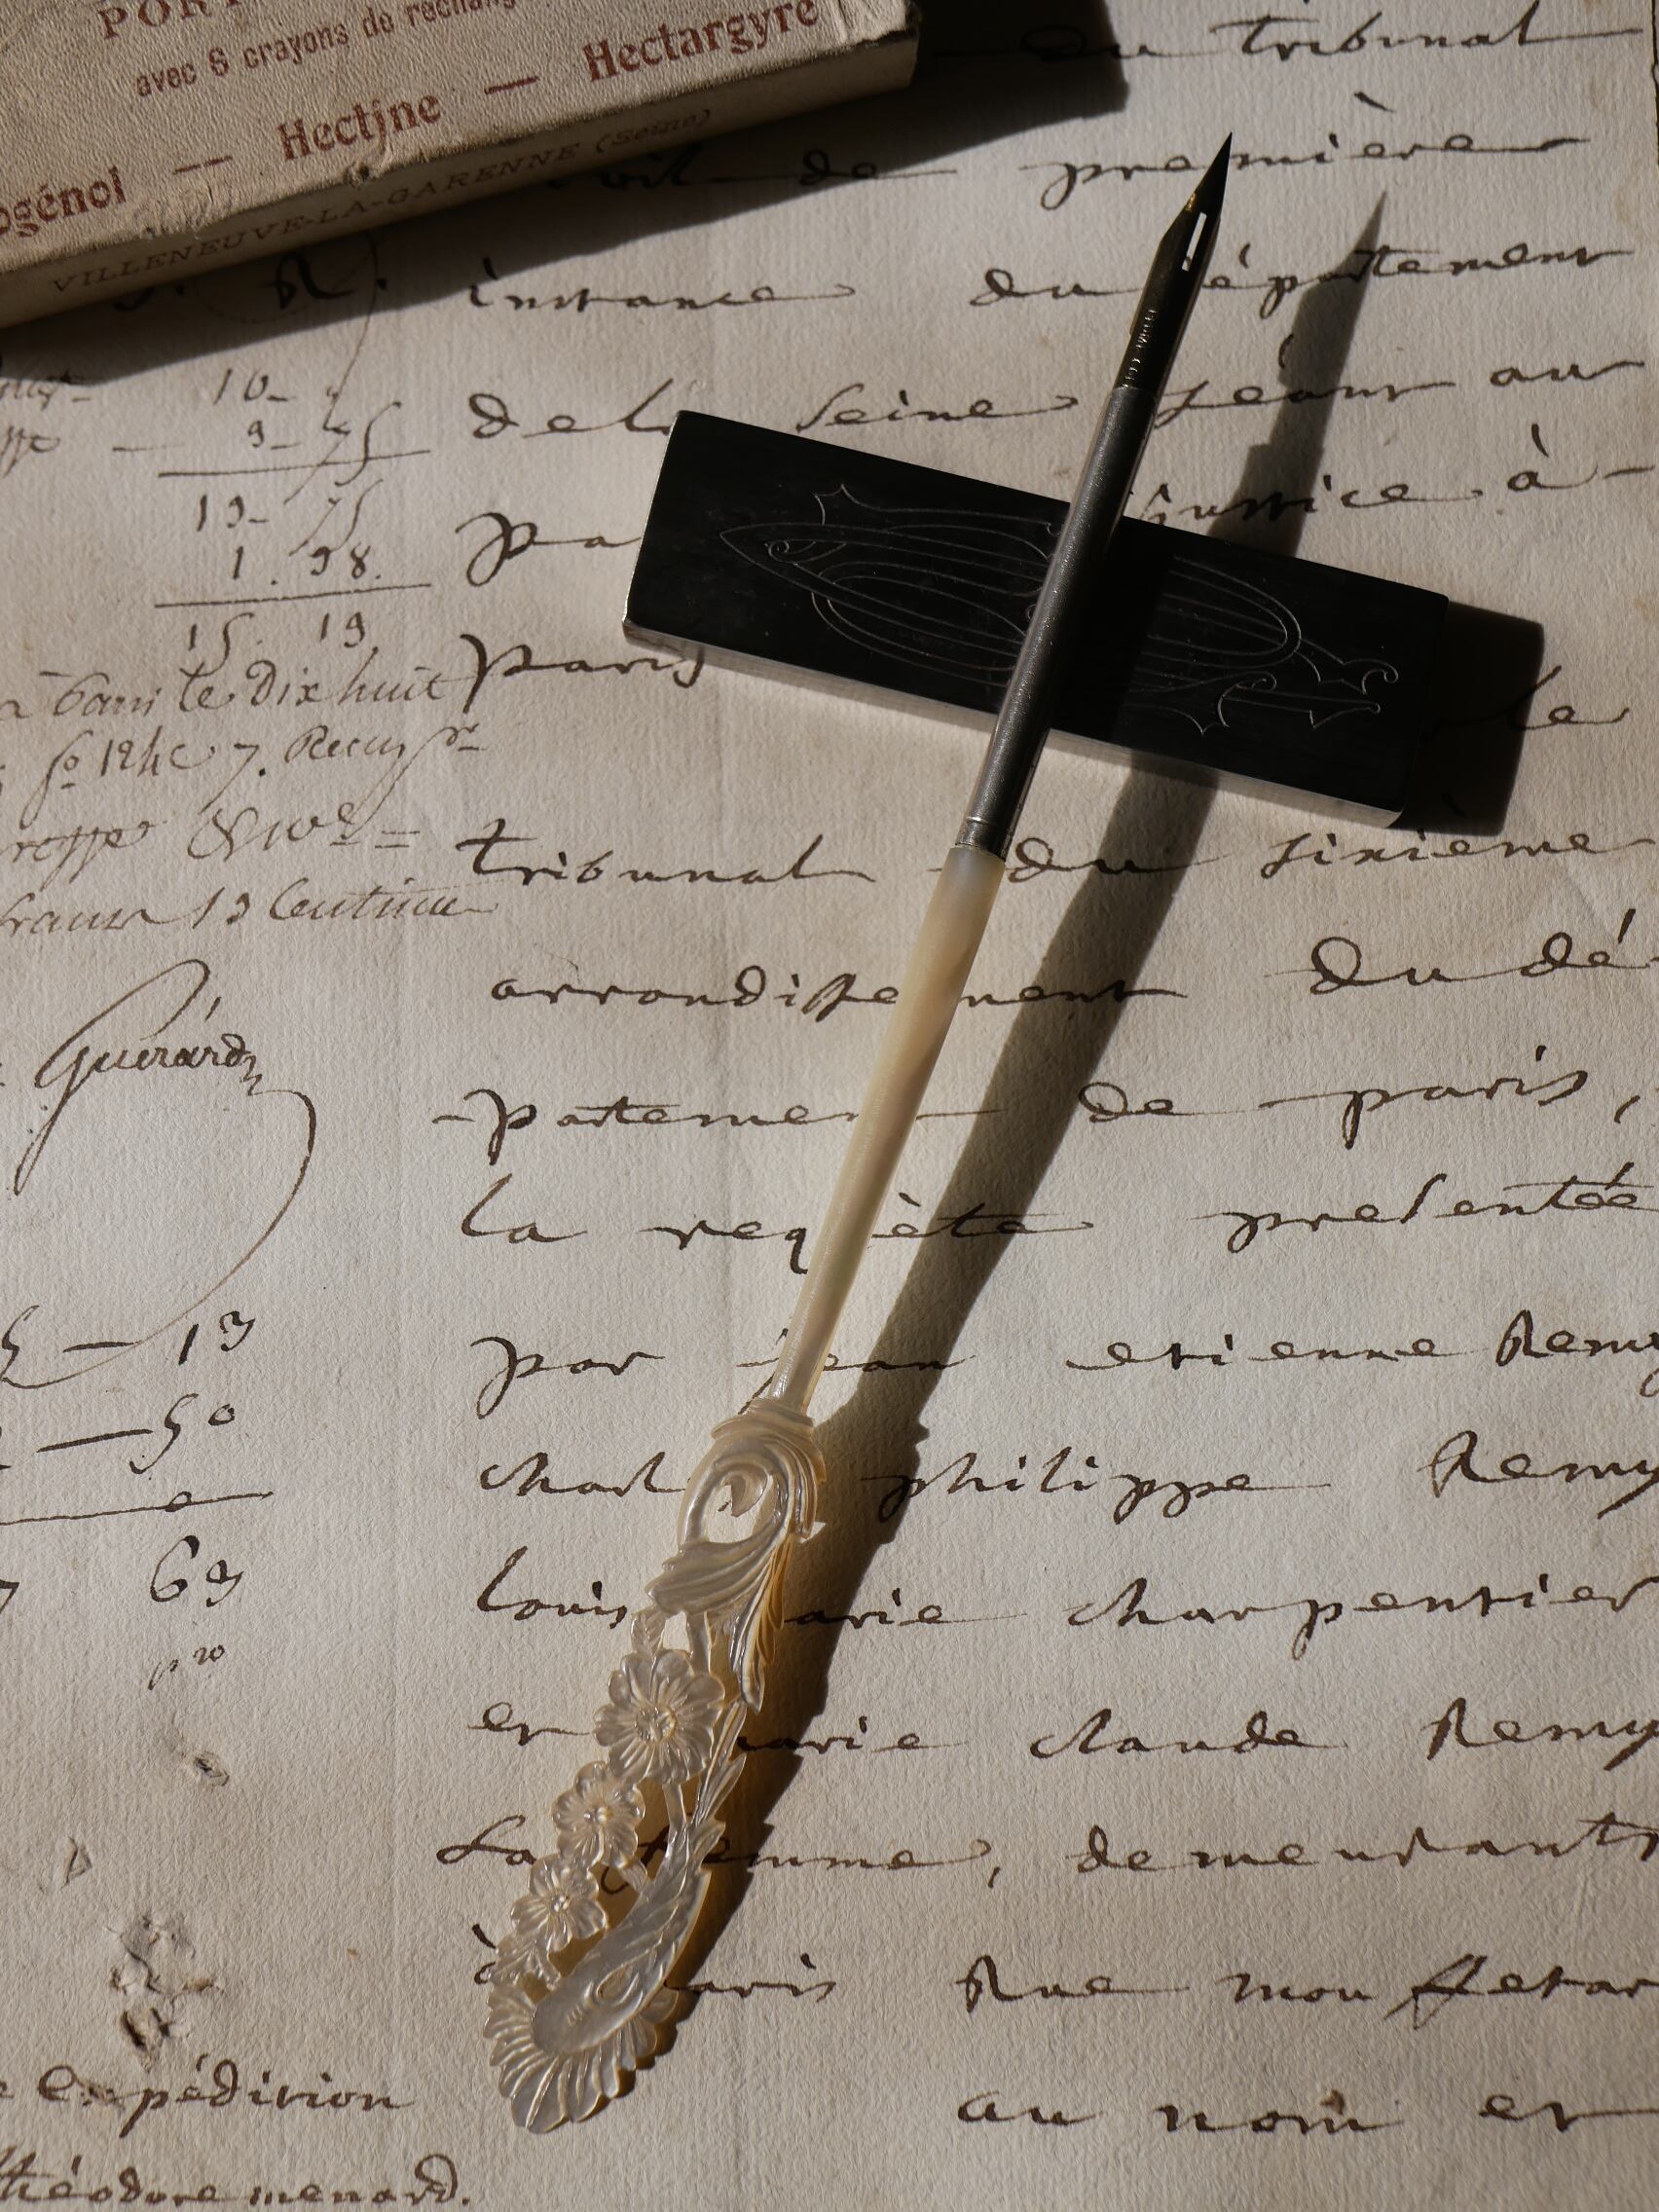 avec 6 crayons de rechang
ogénol — Hectine — Hectargyre
VILLENEUVE-LA-GARENNE (Seine)
du tribunal
de première
instance du département
de la Seine séant au
justice à
paris
le
tribunal du sixième
arrondissement du dé
partement de paris,
la requète presentée
par jean etienne Remy
philippe Remy
louis marie charpentier
et marie claude Remy
Sa femme, demeurants
à paris Rue mouffetar
au nom et
10
9 75
13 75
1.38
15. 13
à paris le Dix huit
fo 124
francs 13 Centimes
Guérard
13
50
63
Expédition
théodore menard.